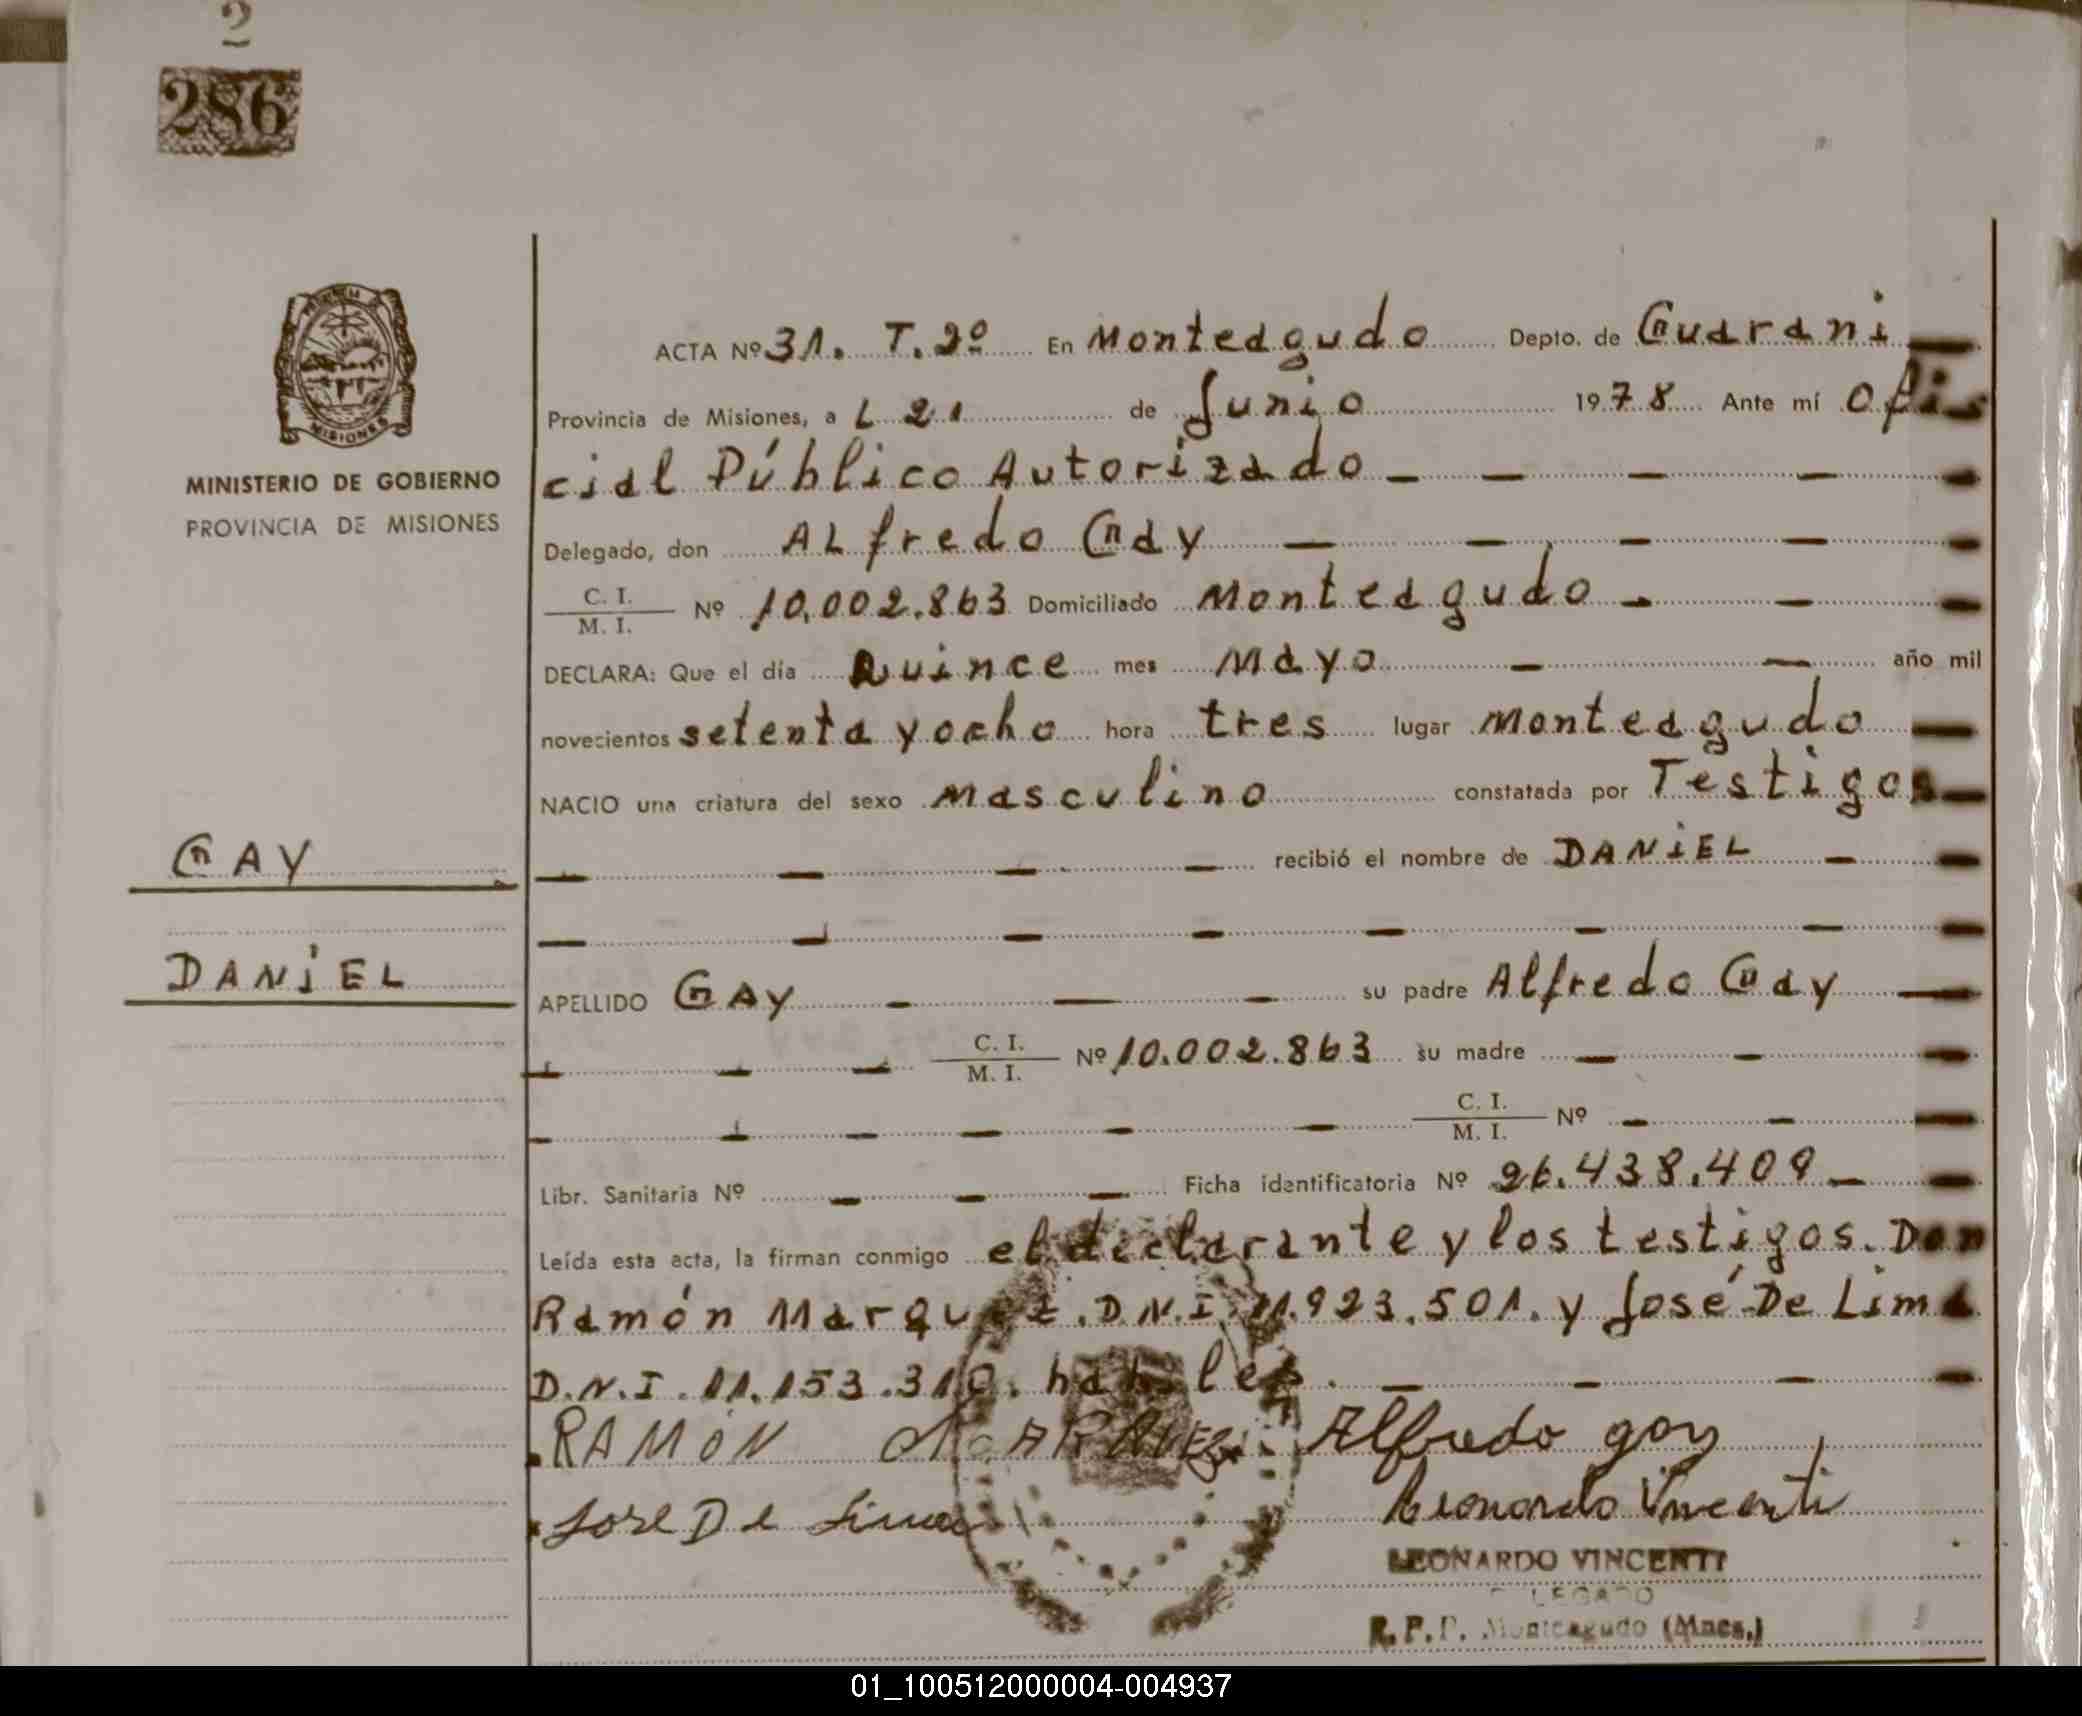 2
286
PROVINCIA DE
MISIONES
MINISTERIO DE GOBIERNO
PROVINCIA DE MISIONES
GAY
DANiEL
ACTA Nº 31. T. 2º En Monteagudo Depto. de Guarani
Provincia de Misiones, a L 21 de Junio 1978 Ante mí Ofi
cial Público Autorizado
Delegado, don ALfredo Gay
C. I.
M. I.
Nº 10.002.863 Domiciliado Monteagudo
DECLARA: Que el día Quince mes Mayo año mil
novecientos setenta y ocho hora tres lugar Monteagudo
NACIO una criatura del sexo Masculino constatada por Testigos
recibió el nombre de DANiEL
APELLIDO GAy su padre Alfredo Gay
C. I.
M. I.
Nº 10.002.863 su madre
C. I.
M. I.
Nº
Libr. Sanitaria Nº Ficha identificatoria Nº 26.438.409
Leída esta acta, la firman conmigo el declarante y los testigos. Don
Ramón Marquez. D.N.I. 11.923.501. y José De Lima
D.N.I. 11.153.310. habiles.
RAMÓN MARQUEZ Alfredo gay
Jose De Lima Leonardo Vincenti
LEONARDO VINCENTI
DELEGADO
R. P. P. Monteagudo (Mnes.)
01_100512000004-004937